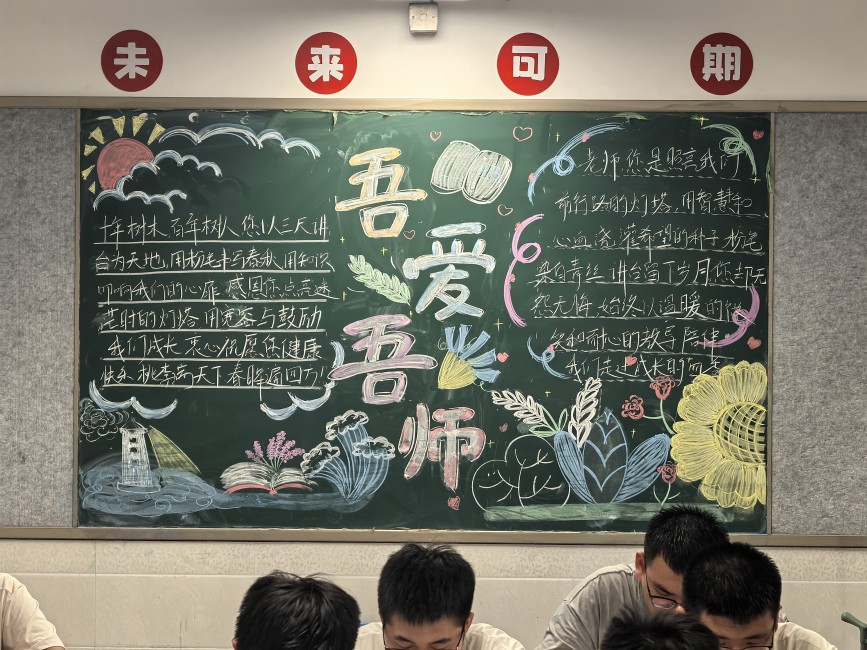 未来可期
吾爱吾师
十年树木 百年树人 您以三尺讲
台为天地,用粉笔书写春秋 用知识
叩响我们的心扉 感恩您点亮迷
茫时的灯塔 用宽容与鼓励
我们成长 衷心祝愿您健康
快乐 桃李满天下 春晖遍四方!
老师 您是照亮我们
前行路的灯塔,用智慧和
心血浇灌希望的种子 粉笔
染白青丝 讲台留下岁月 您却无
怨无悔 始终以温暖的
和耐心的教导 陪伴
我们走过成长的